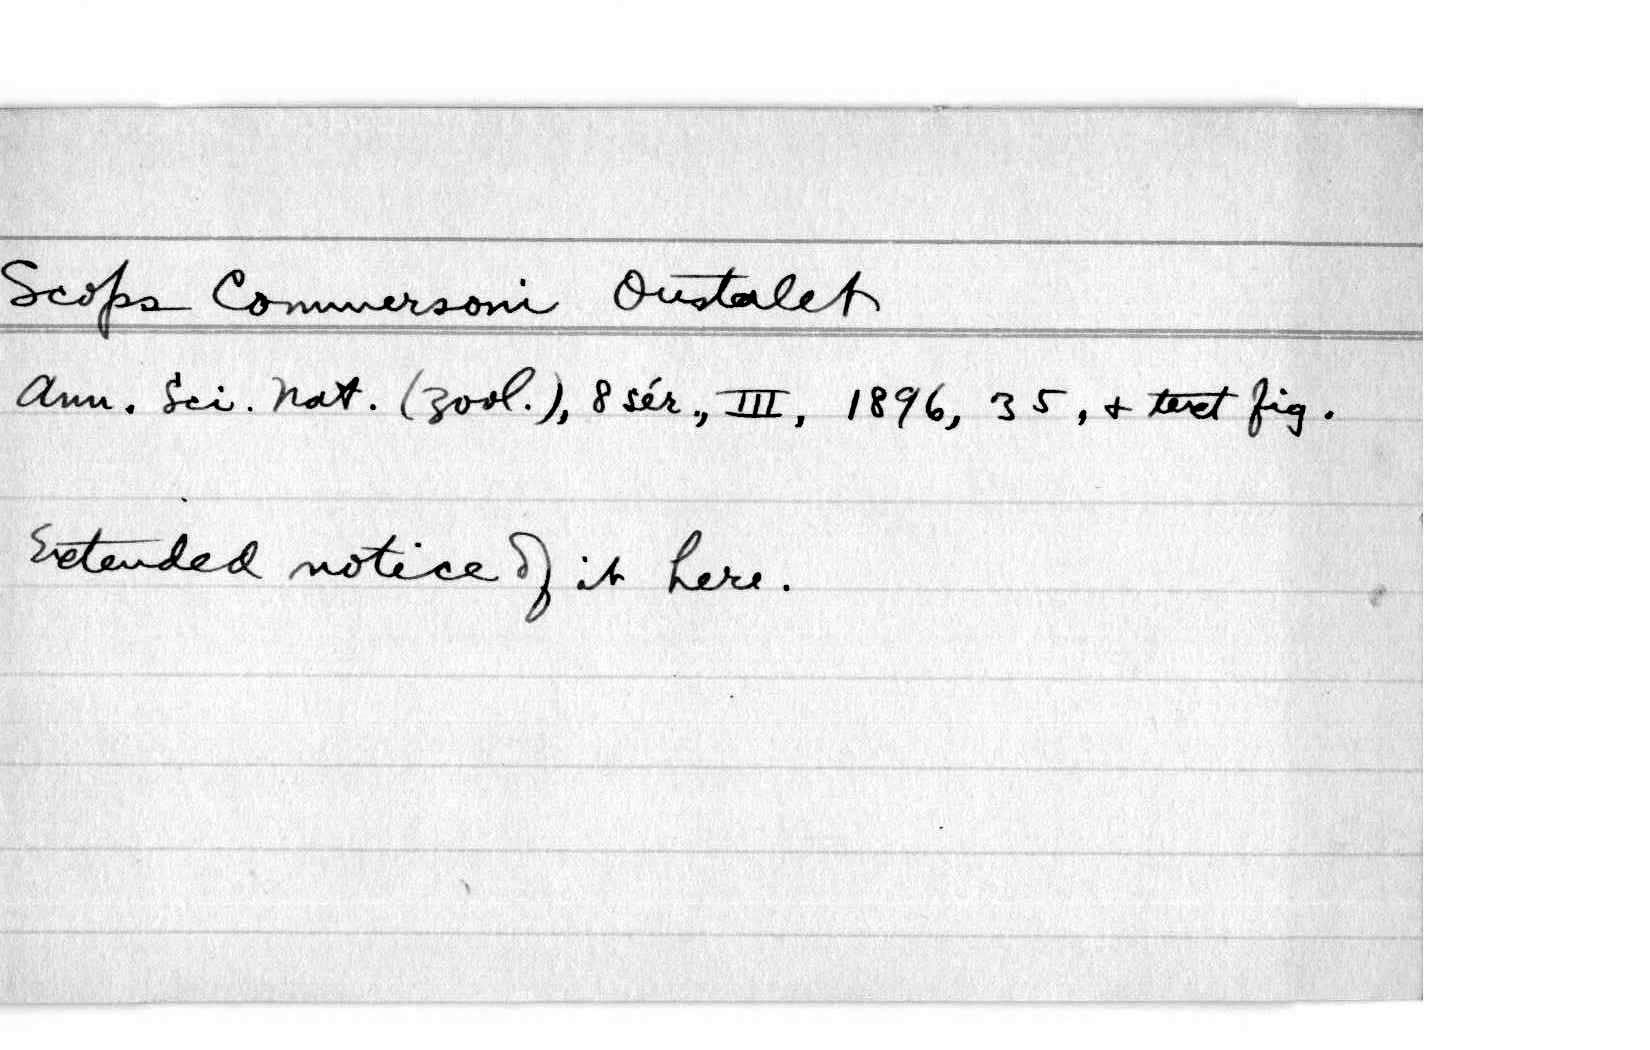 Scops Commersoni Oustalet
Ann. Sci. Nat. (Zool.), 8 sér., III, 1896, 35, + text fig.
Extended notice of it here.